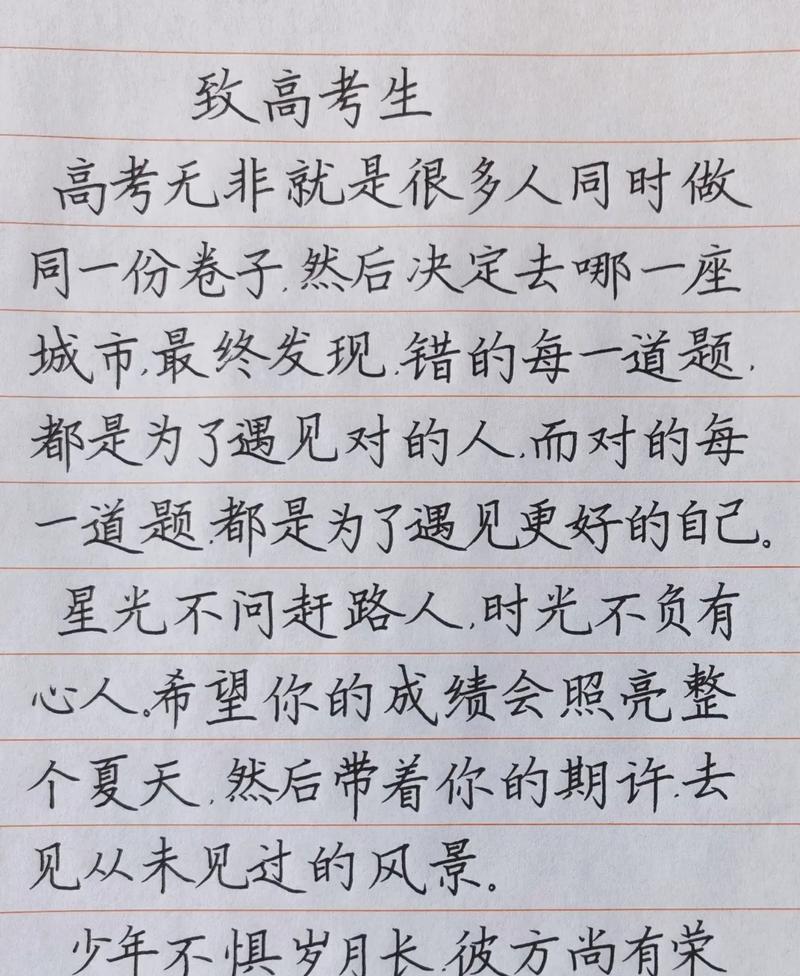 致高考生
高考无非就是很多人同时做
同一份卷子,然后决定去哪一座
城市,最终发现,错的每一道题,
都是为了遇见对的人,而对的每
一道题,都是为了遇见更好的自己。
星光不问赶路人,时光不负有
心人。希望你的成绩会照亮整
个夏天,然后带着你的期许,去
见从未见过的风景。
少年不惧岁月长,彼方尚有荣